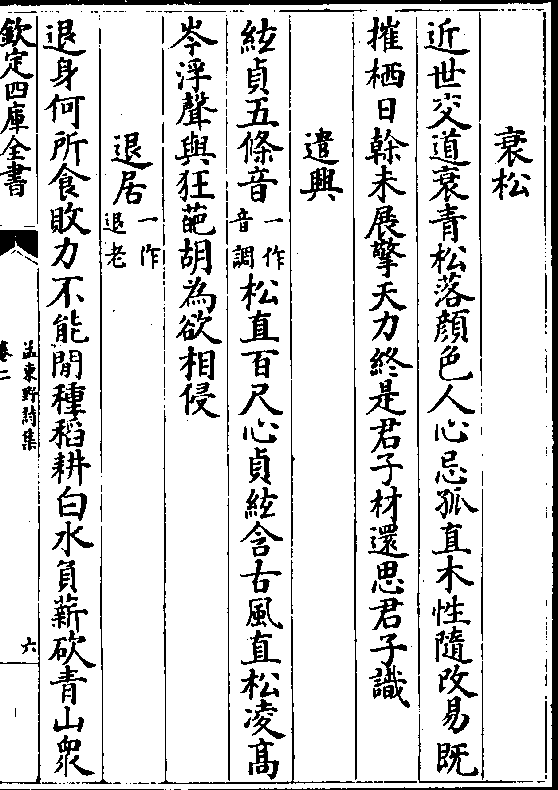 衰松
近世交道衰青松落顔色人心忌孤直木性隨改易既
摧栖日幹未展擎天力終是君子材還思君子識
遣興
絃貞五條音一作音調松直百尺心貞絃含古風直松凌髙
岑浮聲與狂葩胡為欲相侵
退居一作退老
退身何所食敗力不能閒種稻耕白水負薪砍青山衆
欽定四庫全書
孟東野詩集
卷二
六